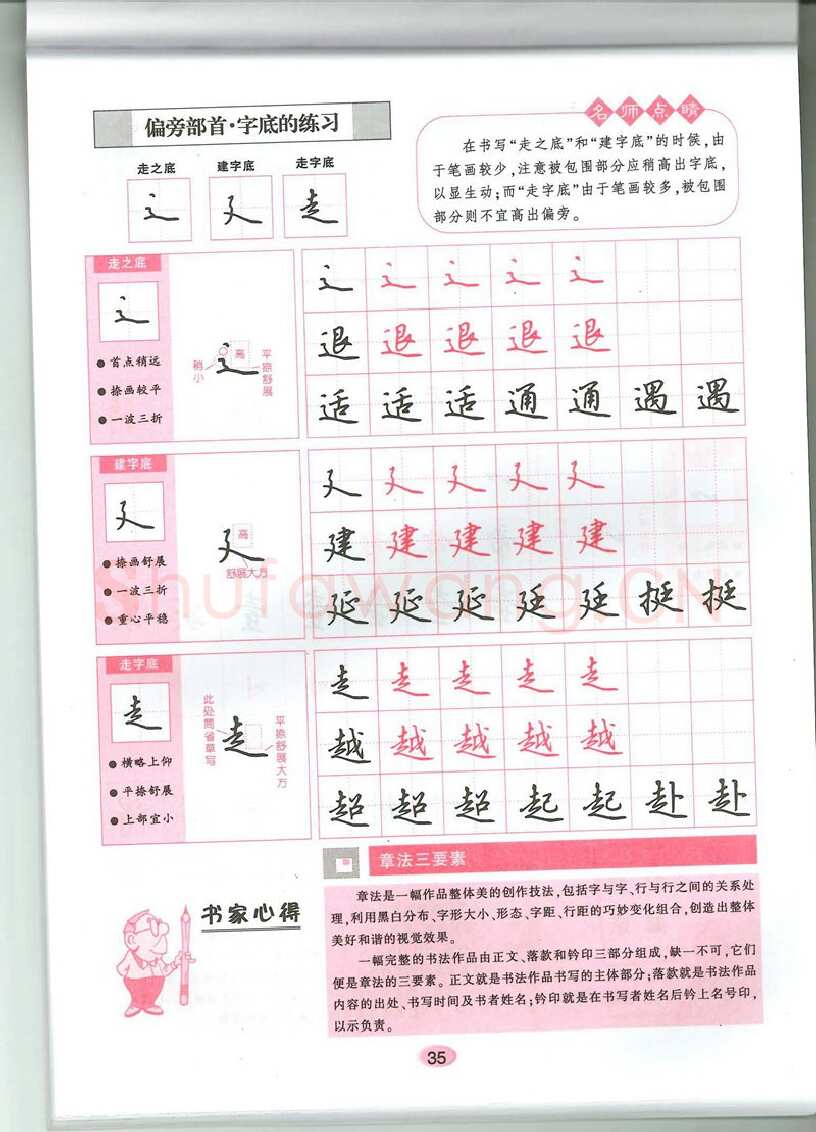 偏旁部首·字底的练习
名师点睛
在书写“走之底”和“建字底”的时候,由
于笔画较少,注意被包围部分应稍高出字底,
以显生动;而“走字底”由于笔画较多,被包围
部分则不宜高出偏旁。
走之底 建字底 走字底
辶 廴 走
走之底
辶
首点稍远
捺画较平
一波三折
稍小
高
平捺舒展
辶 辶 辶 辶 辶
退 退 退 退 退
适 适 适 通 通 遇 遇
建字底
廴
捺画舒展
一波三折
重心平稳
高
舒展大方
廴 廴 廴 廴 廴
建 建 建 建 建
延 延 延 廷 廷 挺 挺
Shufawang.CN
走字底
走
横略上仰
平捺舒展
上部宜小
平捺舒展大方
走 走 走 走 走
越 越 越 越 越
超 超 超 起 起 赴 赴
章法三要素
书家心得
章法是一幅作品整体美的创作技法,包括字与字、行与行之间的关系处
理,利用黑白分布、字形大小、形态、字距、行距的巧妙变化组合,创造出整体
美好和谐的视觉效果。
一幅完整的书法作品由正文、落款和钤印三部分组成,缺一不可,它们
便是章法的三要素。正文就是书法作品书写的主体部分;落款就是书法作品
内容的出处、书写时间及书者姓名;钤印就是在书写者姓名后钤上名号印,
以示负责。
35